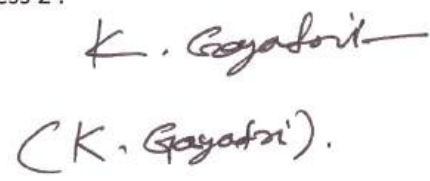 ess 2 :
K. Gayatri
(K. Gayatri).